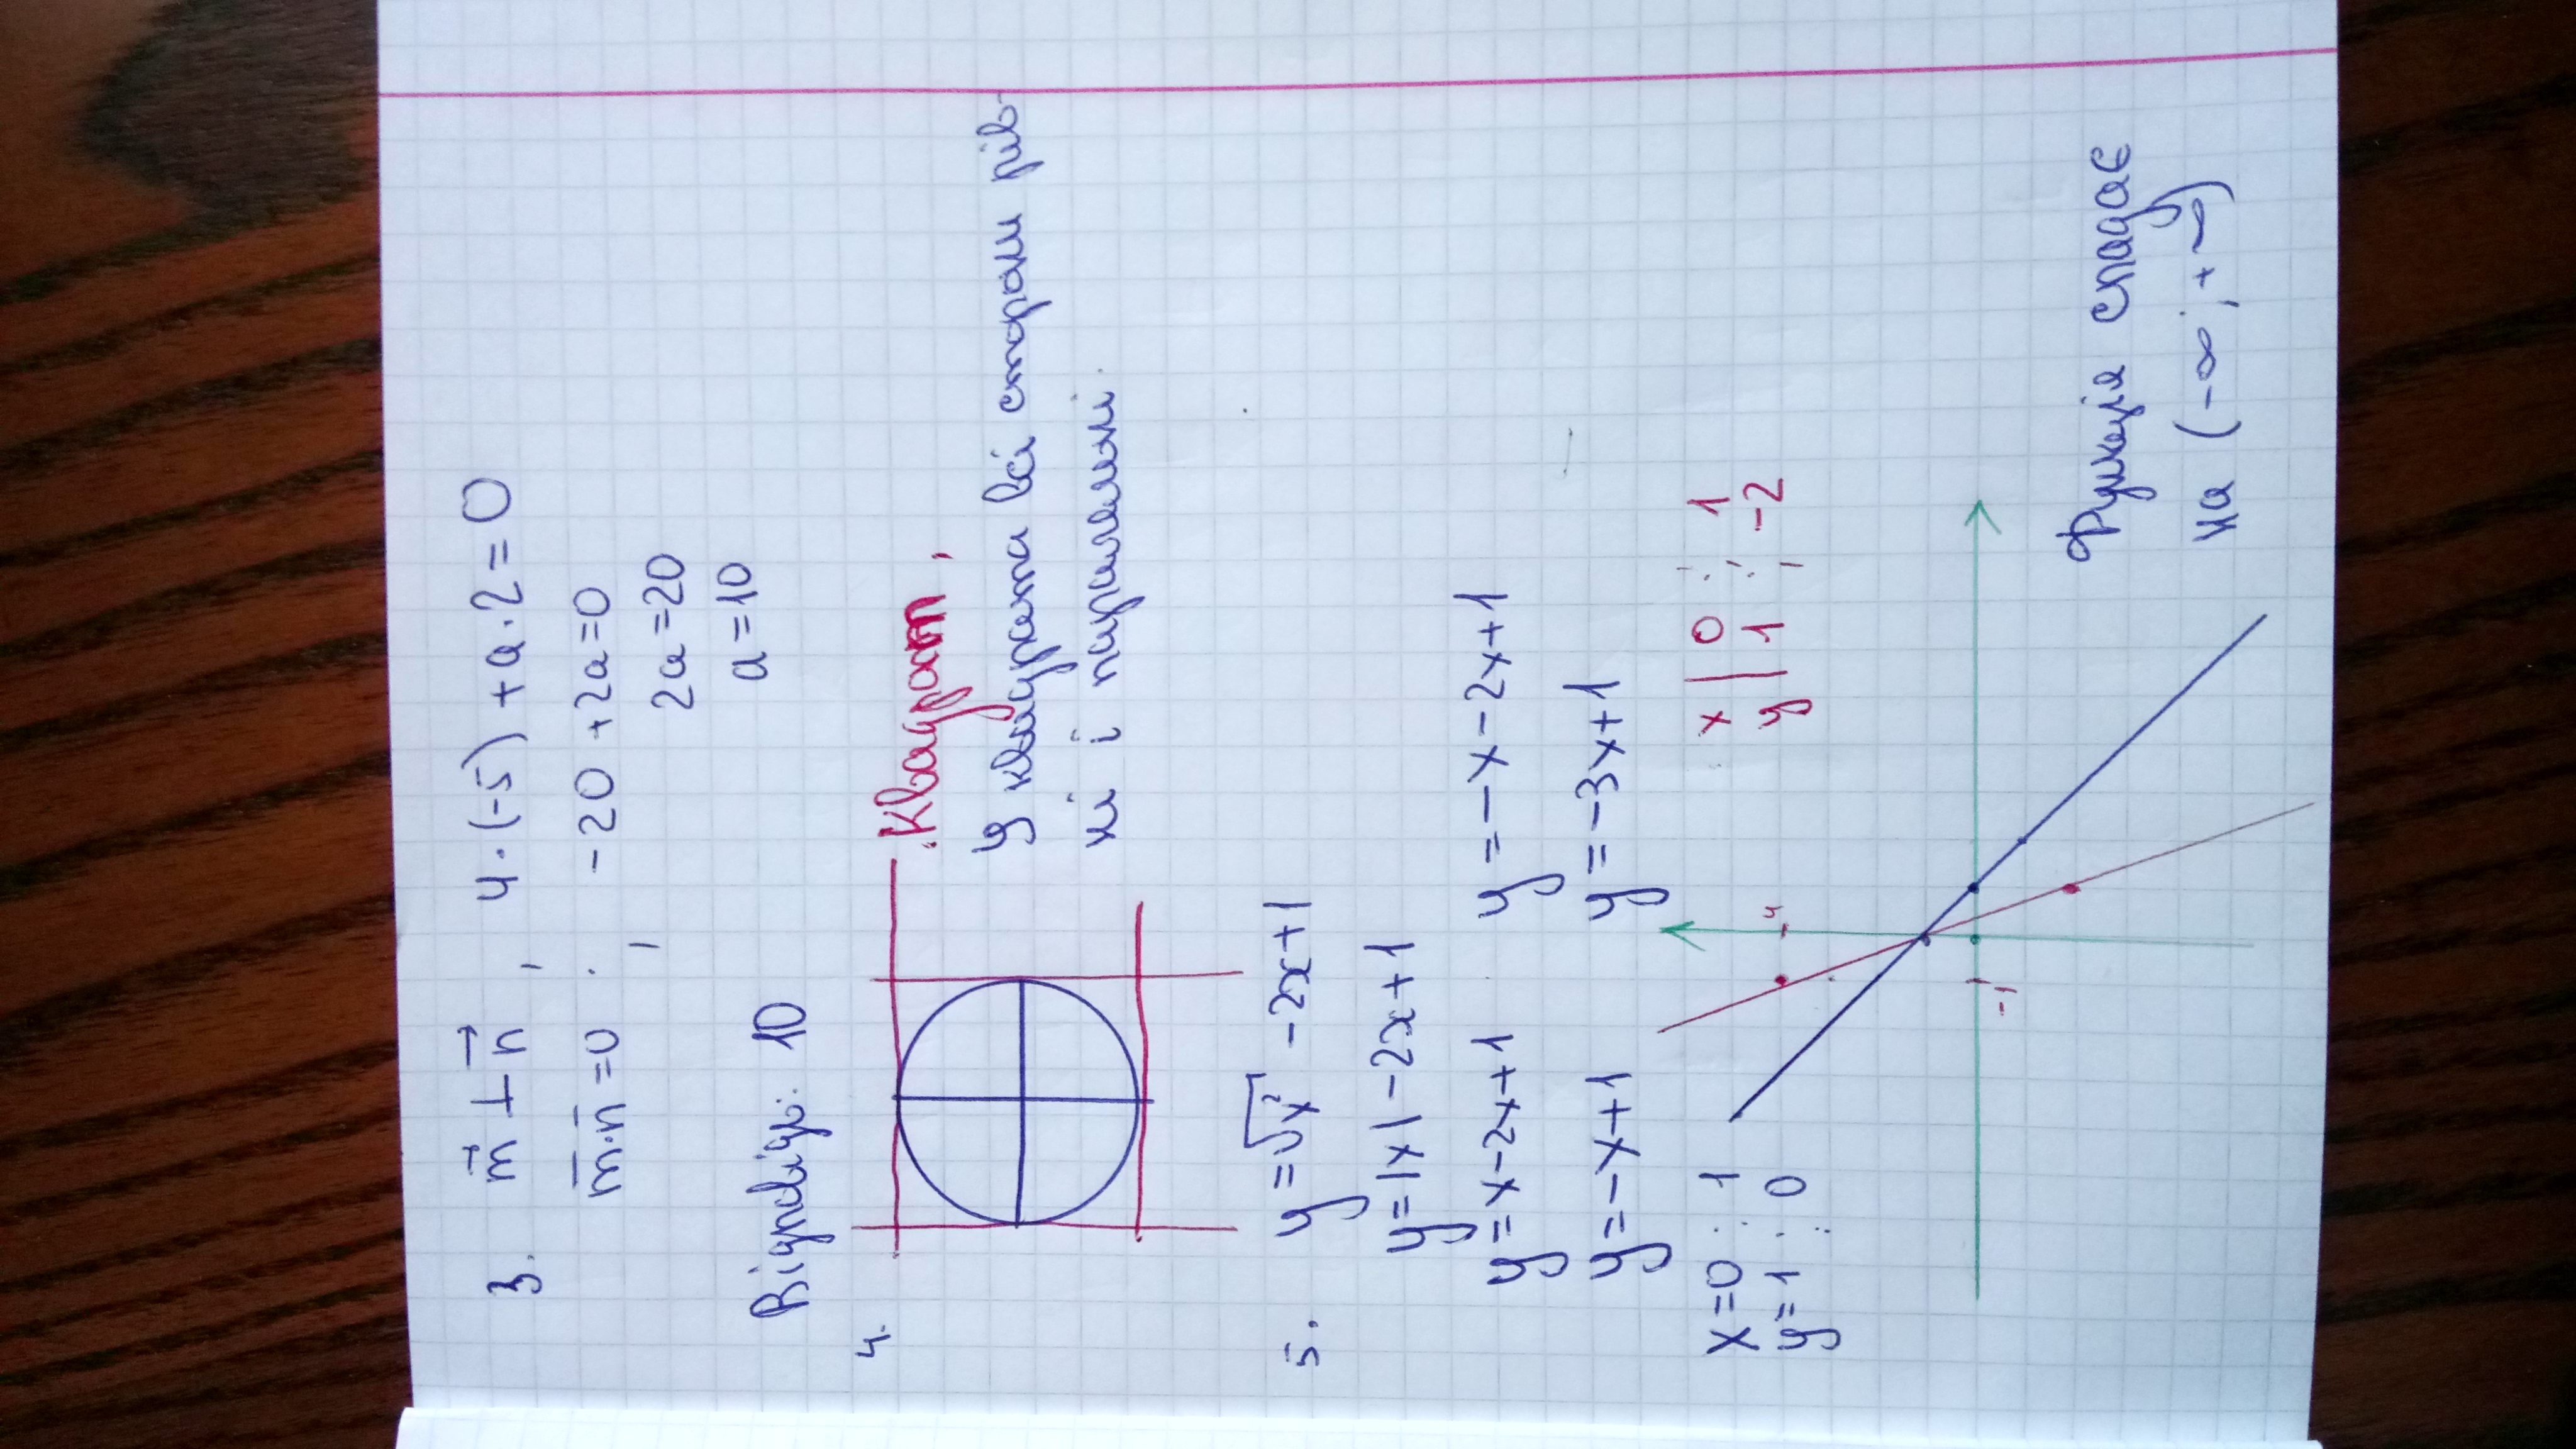 3. m⃗ ⊥ n⃗, 4·(-5)+a·2=0
m̅·n̅=0; -20+2a=0
2a=20
a=10
Відповідь: 10
4. Квадрат,
У квадрата всі сторони рів-
ні і паралельні.
5. y=√x² -2x+1
y=|x|-2x+1
y=x-2x+1 y=-x-2x+1
y=-x+1 y=-3x+1
x=0; 1 x|0; 1
y=1; 0 y|1; -2
4
-1
Функція спадає
на (-∞; +∞)